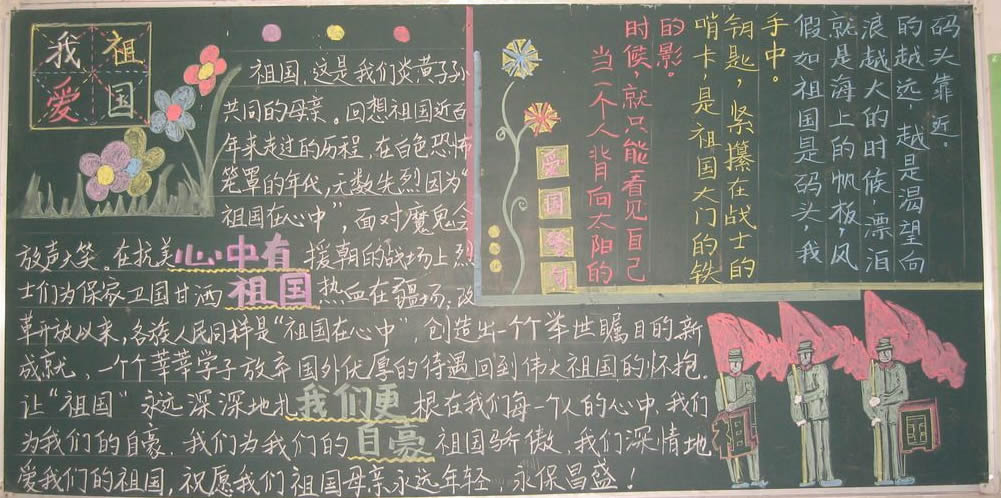 我 祖
爱 国
祖国，这是我们炎黄子孙
共同的母亲。回想祖国近百
年来走过的历程，在白色恐怖
笼罩的年代，无数失烈因为“
祖国在心中”，面对魔鬼会
放声大笑。在抗美心中有援朝的战场上烈
士们为保家卫国甘洒祖国热血在疆场，改
革开放以来，各族人民同样是“祖国在心中”，创造出一个个举世瞩目的新
成就，一个个莘莘学子放弃国外优厚的待遇回到伟大祖国的怀抱。
让“祖国”永远深深地扎我们更根在我们每一个人的心中，我们
为我们的自豪，我们为我们的自豪祖国骄傲，我们深情地
爱我们的祖国，祝愿我们祖国母亲永远年轻，永保昌盛！
爱国句
当一个人背向太阳的
时候，就只能看见自己
的影。
哨卡，是祖国大门的铁
钥匙，紧攥在战士的
手中。
假如祖国是码头，我
就是海上的帆板，风
浪越大的时候，漂泊
的越远，越是渴望向
码头靠近。